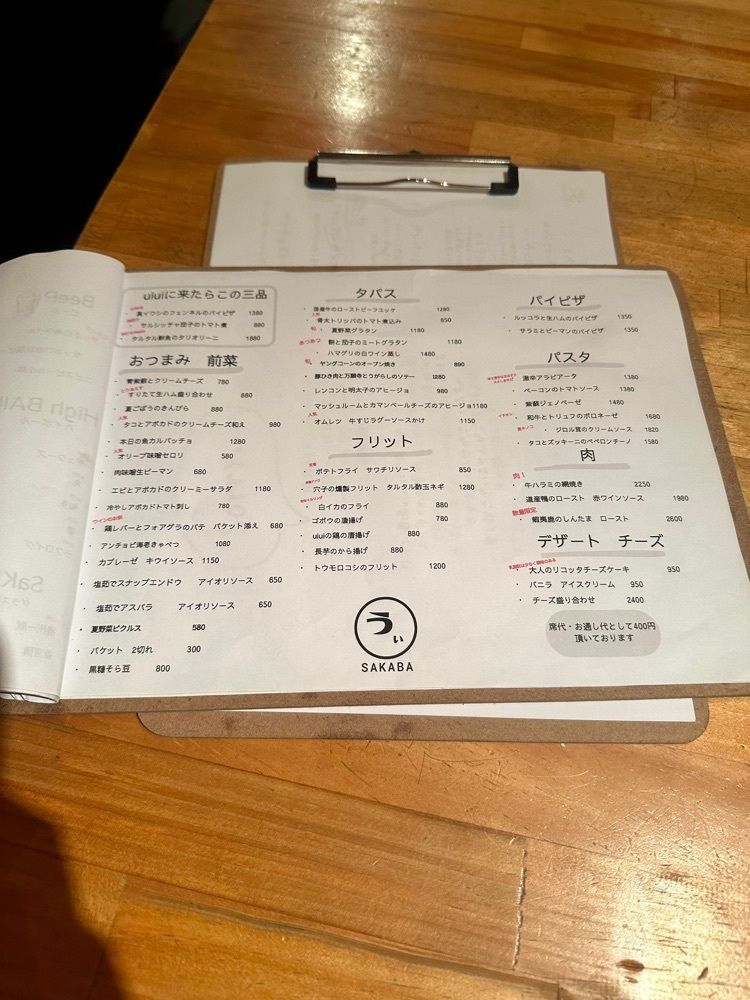 uluiに来たらこの三品
真イワシのフェンネルのパイピザ 1380
サルシッチャ茄子のトマト煮 880
タルタル鮮魚のタリオリーニ 1880
おつまみ 前菜
青紫蘇とクリームチーズ 780
すりたて生ハム盛り合わせ 880
夏ごぼうのきんぴら 880
人気
タコとアボカドのクリームチーズ和え 980
本日の魚カルパッチョ 1280
人気
オリーブ味噌セロリ 580
肉味噌生ピーマン 680
エビとアボカドのクリーミーサラダ 1180
冷やしアボカドトマト刺し 780
ワインのお供
鶏レバーとフォアグラのパテ バケット添え 680
アンチョビ海老きゃべつ 1080
カプレーゼ キウイソース 1150
塩茹でスナップエンドウ アイオリソース 650
塩茹でアスパラ アイオリソース 650
夏野菜ピクルス 580
バケット 2切れ 300
黒糖そら豆 800
タパス
国産牛のローストビーフユッケ 1280
人気
骨太トリッパのトマト煮込み 850
旬
夏野菜グラタン 1180
あつあつ
餅と茄子のミートグラタン 1180
ハマグリの白ワイン蒸し 1480
旬
ヤングコーンのオーブン焼き 890
豚ひき肉と万願寺とうがらしのソテー 1280
レンコンと明太子のアヒージョ 980
マッシュルームとカマンベールチーズのアヒージョ 1180
人気
オムレツ 牛すじラグーソースかけ 1150
フリット
定番
ポテトフライ サワチリソース 850
穴子の燻製フリット タルタル酢玉ネギ 1280
白イカのフライ 880
ゴボウの唐揚げ 780
uluiの鶏の唐揚げ 880
長芋のから揚げ 880
トウモロコシのフリット 1200
うぃ
SAKABA
パイピザ
ルッコラと生ハムのパイピザ 1350
サラミとピーマンのパイピザ 1350
パスタ
激辛アラビアータ 1380
ベーコンのトマトソース 1380
紫蘇ジェノベーゼ 1480
イチオシ
和牛とトリュフのボロネーゼ 1680
ジロル茸のクリームソース 1820
タコとズッキーニのペペロンチーノ 1580
肉
肉！
牛ハラミの網焼き 2250
道産鴨のロースト 赤ワインソース 1980
数量限定
蝦夷鹿のしんたま ロースト 2600
デザート チーズ
大人のリコッタチーズケーキ 950
バニラ アイスクリーム 950
チーズ盛り合わせ 2400
席代・お通し代として400円
頂いております